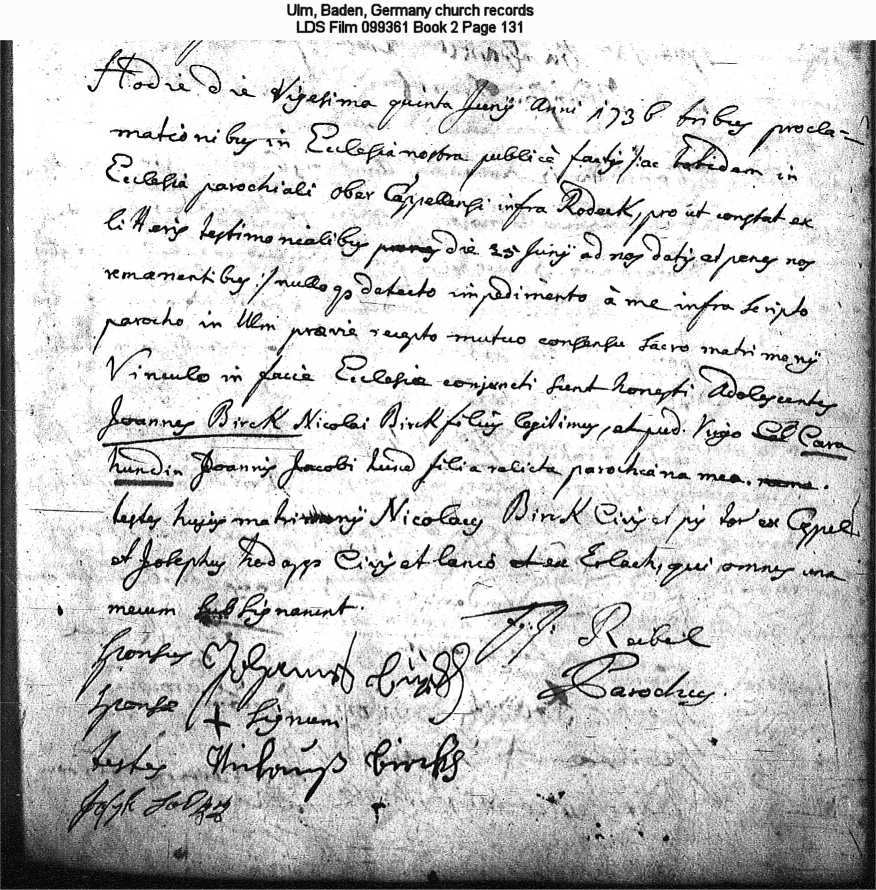 Ulm, Baden, Germany church records
LDS Film 099361 Book 2 Page 131
Hodie die Vigesima quinta Junÿ Anni 1736 tribus procla=
mationibus in Ecclesia nostra publicè factis /: ac totidem in
Ecclesia parochiali ober Cappellensi infra Rodeck, pro ut constat ex
litteris testimonialibus die 25 Junÿ ad nos datis et penes nos
remanentibus :/ nulloqs detecto impedimento à me infra scripto
parocho in Ulm prævie recepto mutuo consensu sacro matrimonÿ
Vinculo in facie Ecclesiæ conjuncti sunt honesti Adolescentes
Joannes Birck Nicolai Birck filius legitimus, et pud. Virgo Cava
hundin Joannis Jacobi hund filia relicta parochiana mea.
testes hujus matrimonÿ Nicolaus Birck Civis et ex Cappel
et Josephus Civis et lanio ex Erlach, qui omnes una
mecum subsignarunt.
Reibel
Parochus.
sponsus Johannes
sponsæ + signum
testes Nicklauß birckh